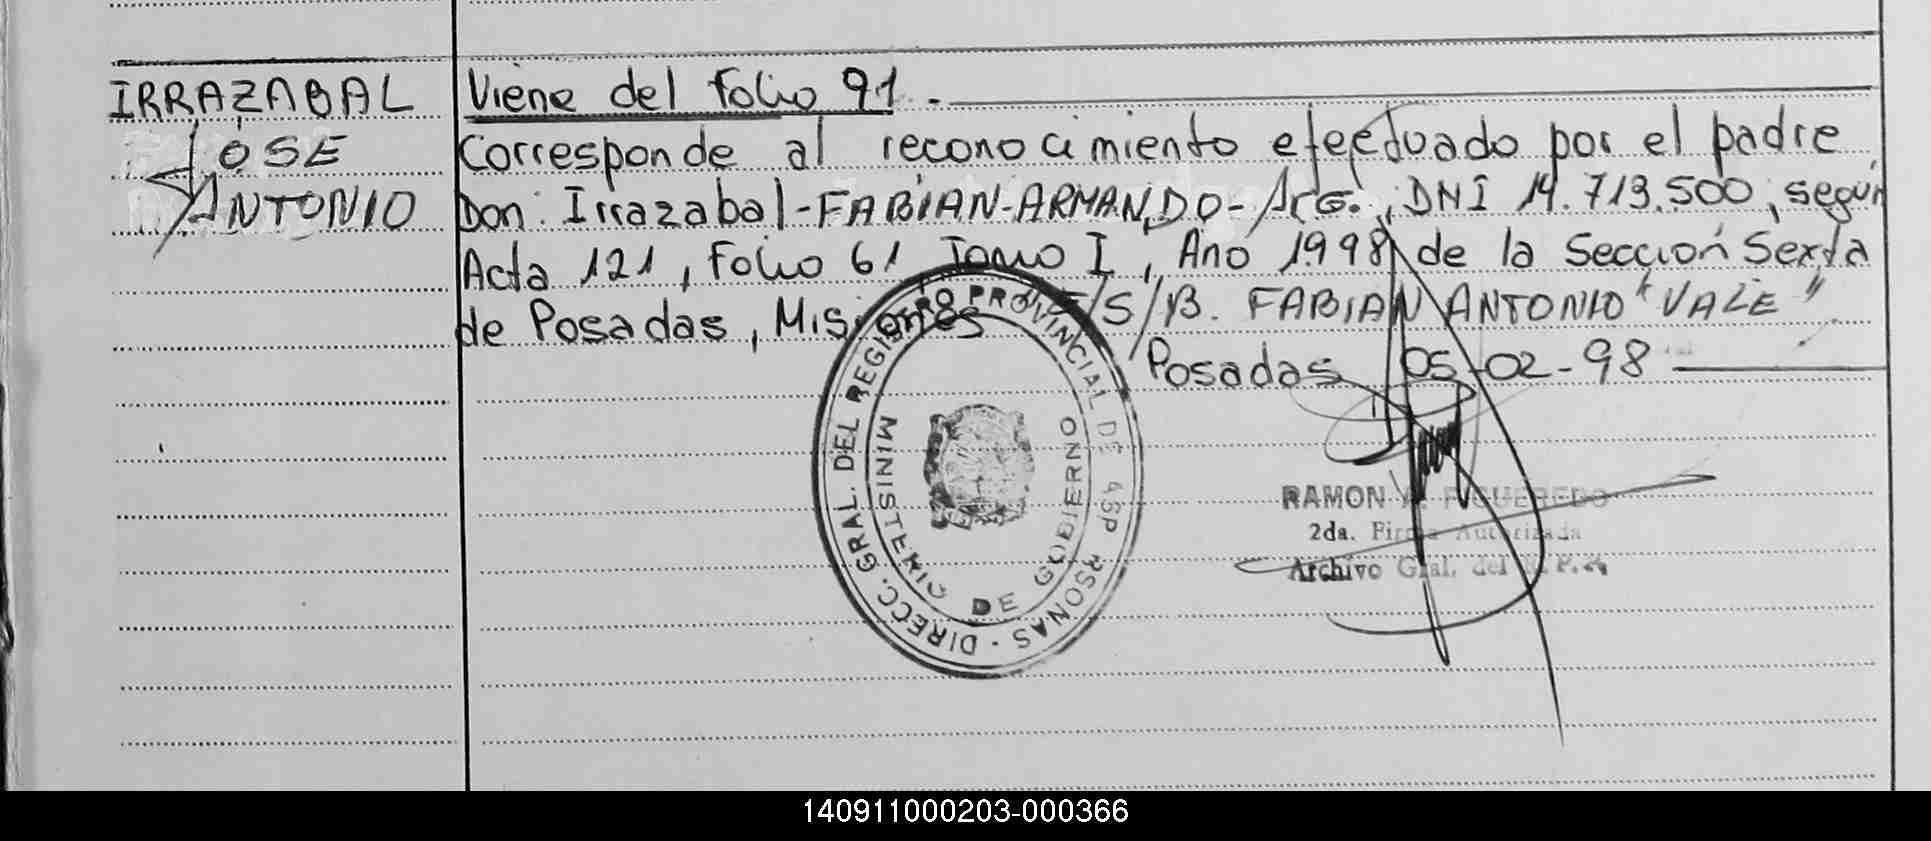 IRRAZABAL
JOSE
ANTONIO
Viene del Folio 91.
Corresponde al reconocimiento efectuado por el padre
Don: Irrazabal-FABIAN-ARMANDO-Arg., DNI 14.713.500, según
Acta 121, Folio 61 Tomo I, Año 1998 de la Sección Sexta
de Posadas, Misiones E/S/B. FABIAN ANTONIO "VALE"
Posadas 05-02-98
DIRECC. GRAL. DEL REGISTRO PROVINCIAL DE
MINISTERIO DE GOBIERNO
RAMON FIGUEREDO
2da. Firma Autorizada
Archivo Gral. del
140911000203-000366